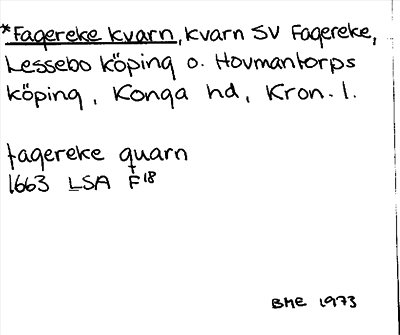 *Fagereke kvarn, kvarn SV Fagereke,
Lessebo köping o. Hovmantorps
köping, Konga hd, Kron. l.
fagereke quarn
1663 LSA F18
BME 1973